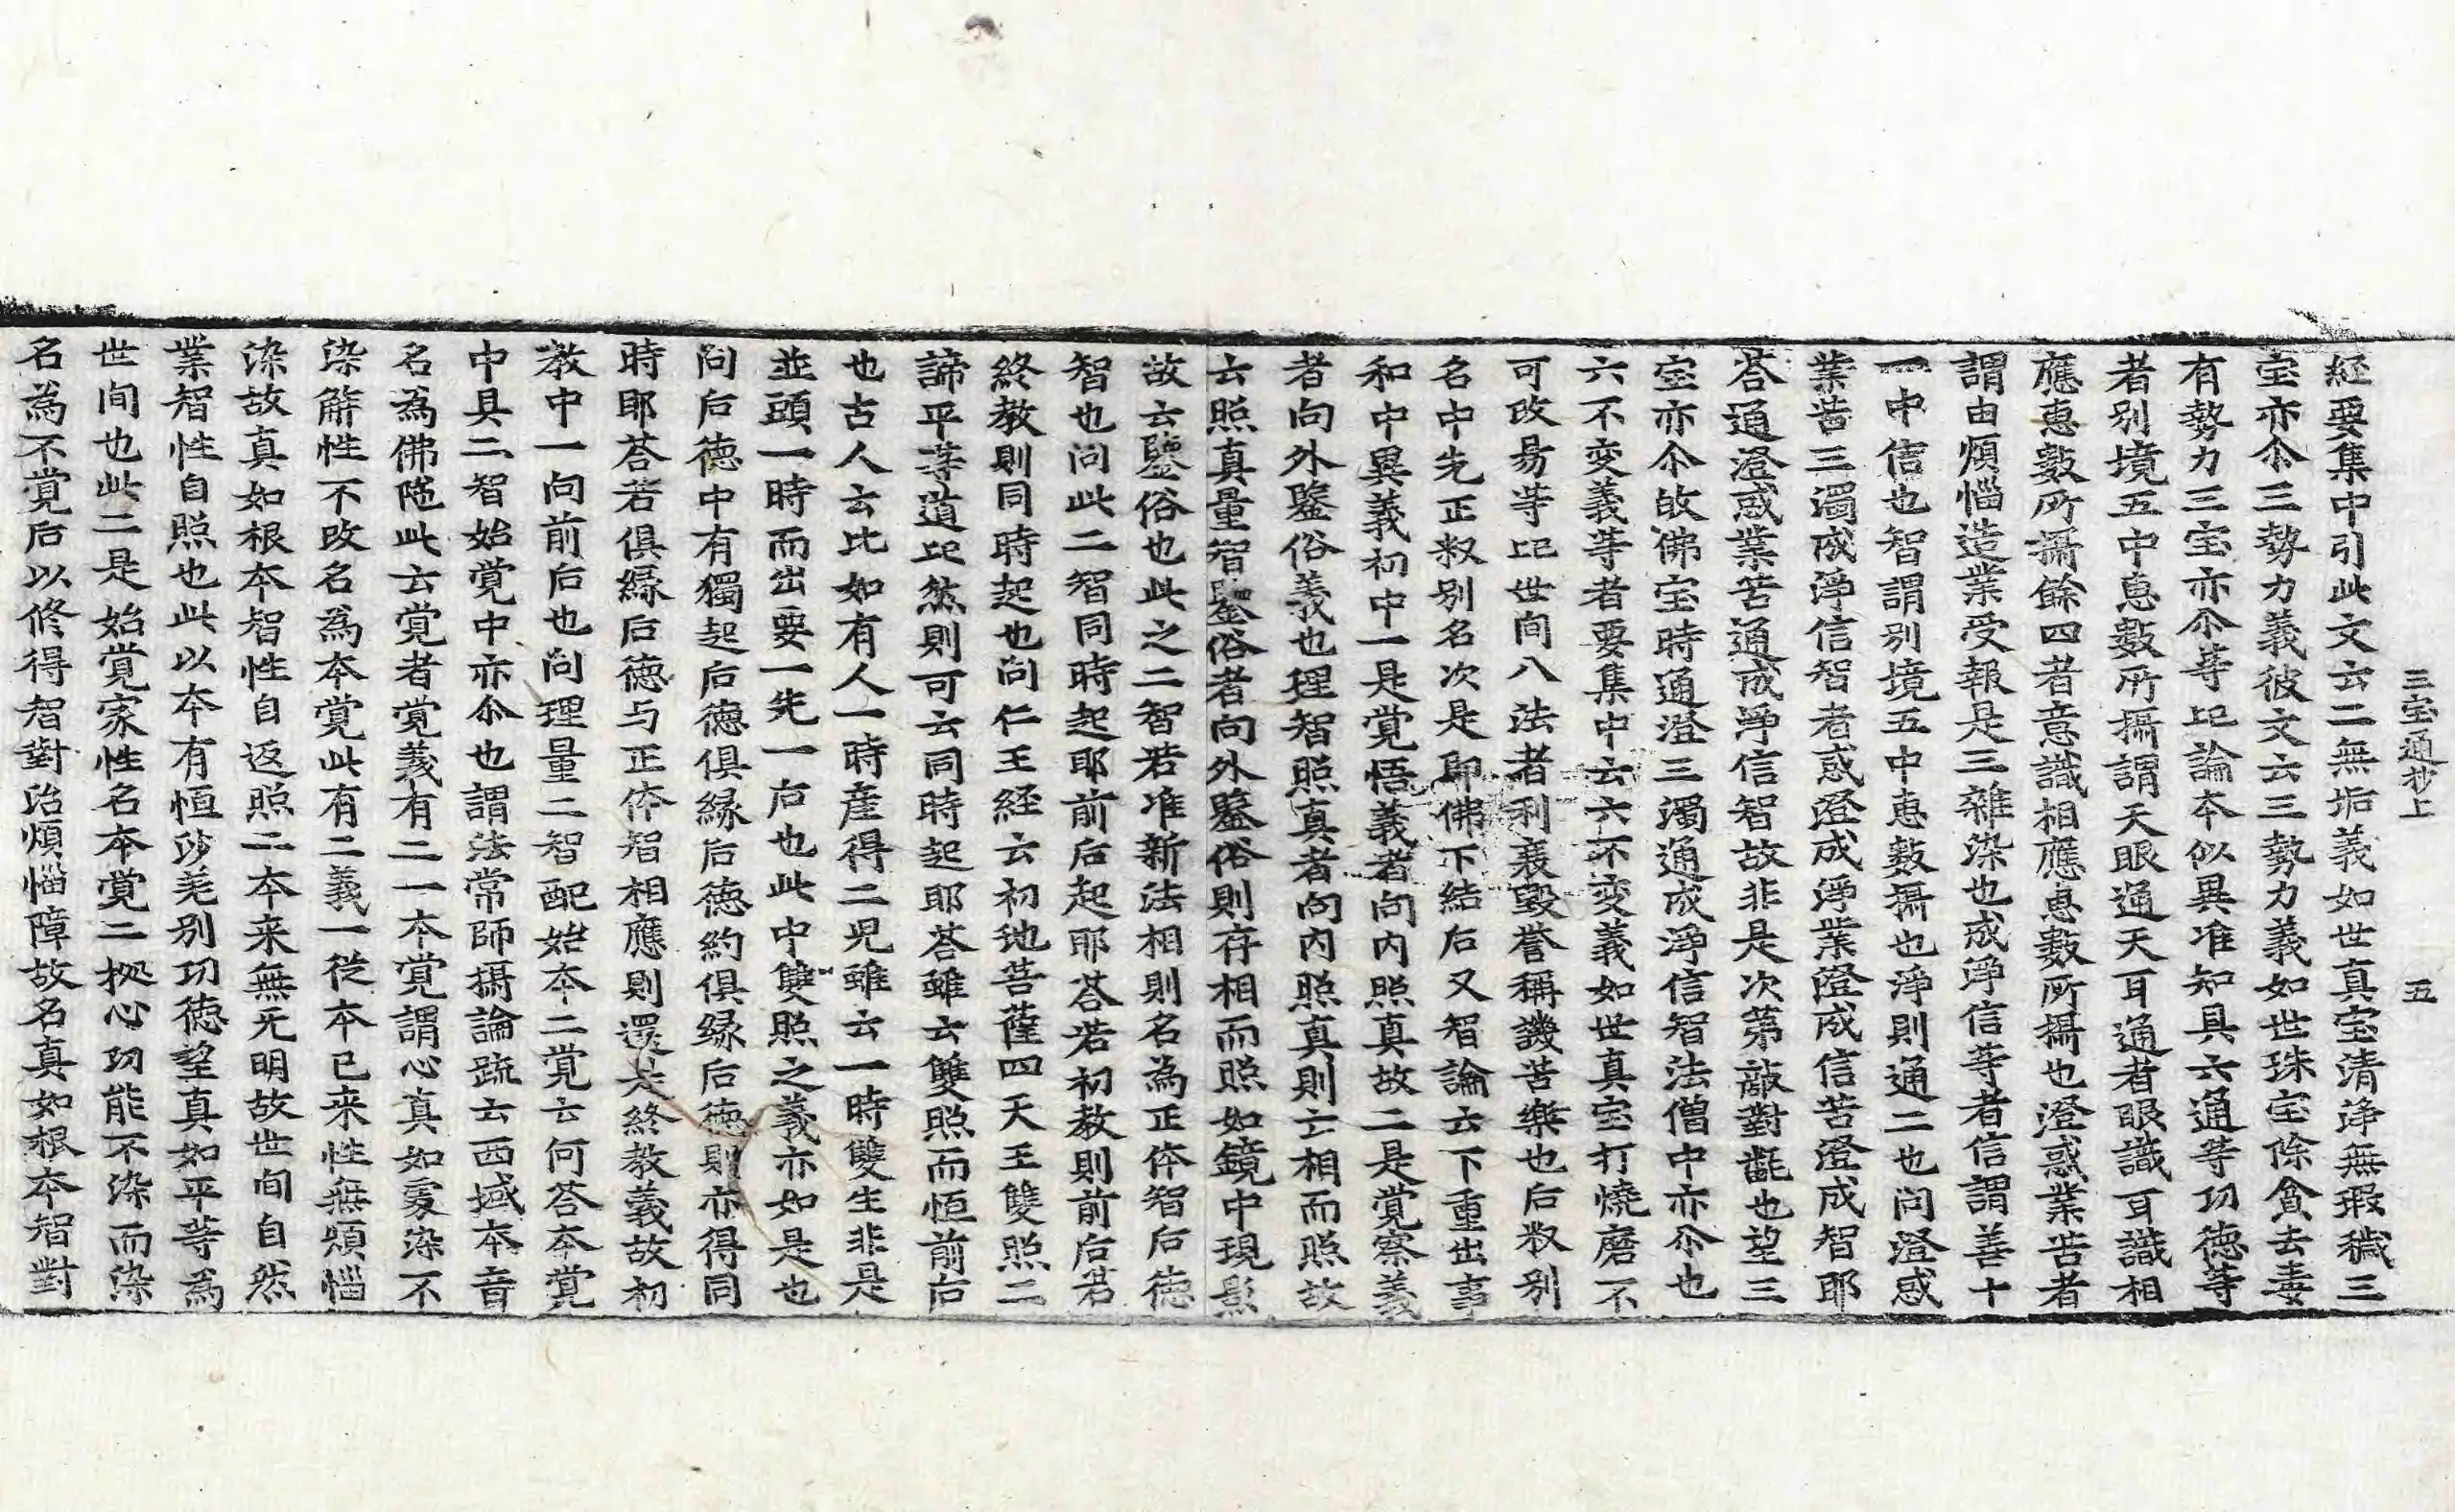 三宝通抄上 五
経要集中引此文云二無垢義如世真宝清浄無瑕穢三
宝亦尒三勢力義彼文云三勢力義如世珠宝除貧去毒
有勢力三宝亦尒等此論本似異准知具六通等功徳等
者別境五中恵數所攝謂天眼通天耳通者眼識耳識相
應恵數所攝餘四者意識相應恵數所攝也澄惑業苦者
謂由煩惱造業受報是三雜染也成淨信等者信謂善十
一中信也智謂別境五中恵數攝也淨則通二也问澄惑
業苦三濁成淨信智者惑澄成淨業澄成信苦澄成智耶
荅通澄惑業苦通成淨信智故非是次第敵對齔也望三
宝亦尒故佛宝時通澄三濁通成淨信智法僧中亦尒也
六不变義等者要集中云六不变義如世真宝打燒磨不
可改易等此世间八法者利衰毀誉稱譏苦樂也后釈別
名中先正釈別名次是即佛下結后又智論云下重出事
和中異義初中一是覚悟義者向内照真故二是覚察義
者向外鑒俗義也理智照真者向内照真則亡相而照故
云照真量智鑒俗者向外鑒俗則存相而照如鏡中現影
故云鑒俗也此之二智若准新法相則名為正体智后徳
智也问此二智同時起耶前后起耶荅若初教則前后若
終教則同時起也问仁王経云初地菩薩四天王雙照二
諦平等道此然則可云同時起耶荅雖云雙照而恒前后
也古人云比如有人一時産得二児雖云一時雙生非是
並頭一時而出要一先一后也此中雙照之義亦如是也
问后徳中有獨起后徳俱緣后徳約俱緣后徳則亦得同
時耶荅若俱緣后徳与正体智相應則還是終教義故初
教中一向前后也问理量二智配始本二覚云何荅本覚
中具二智始覚中亦尒也謂法常師攝論疏云西域本音
名為佛陁此云覚者覚義有二一本覚謂心真如雯染不
染解性不改名為本覚此有二義一從本已来性無煩惱
染故真如根本智性自返照二本来無无明故世间自然
業智性自照也此以本有恒沙羌別功徳望真如平等為
世间也此二是始覚家性名本覚二拠心功能不染而染
名為不覚后以修得智對治煩惱障故名真如根本智對